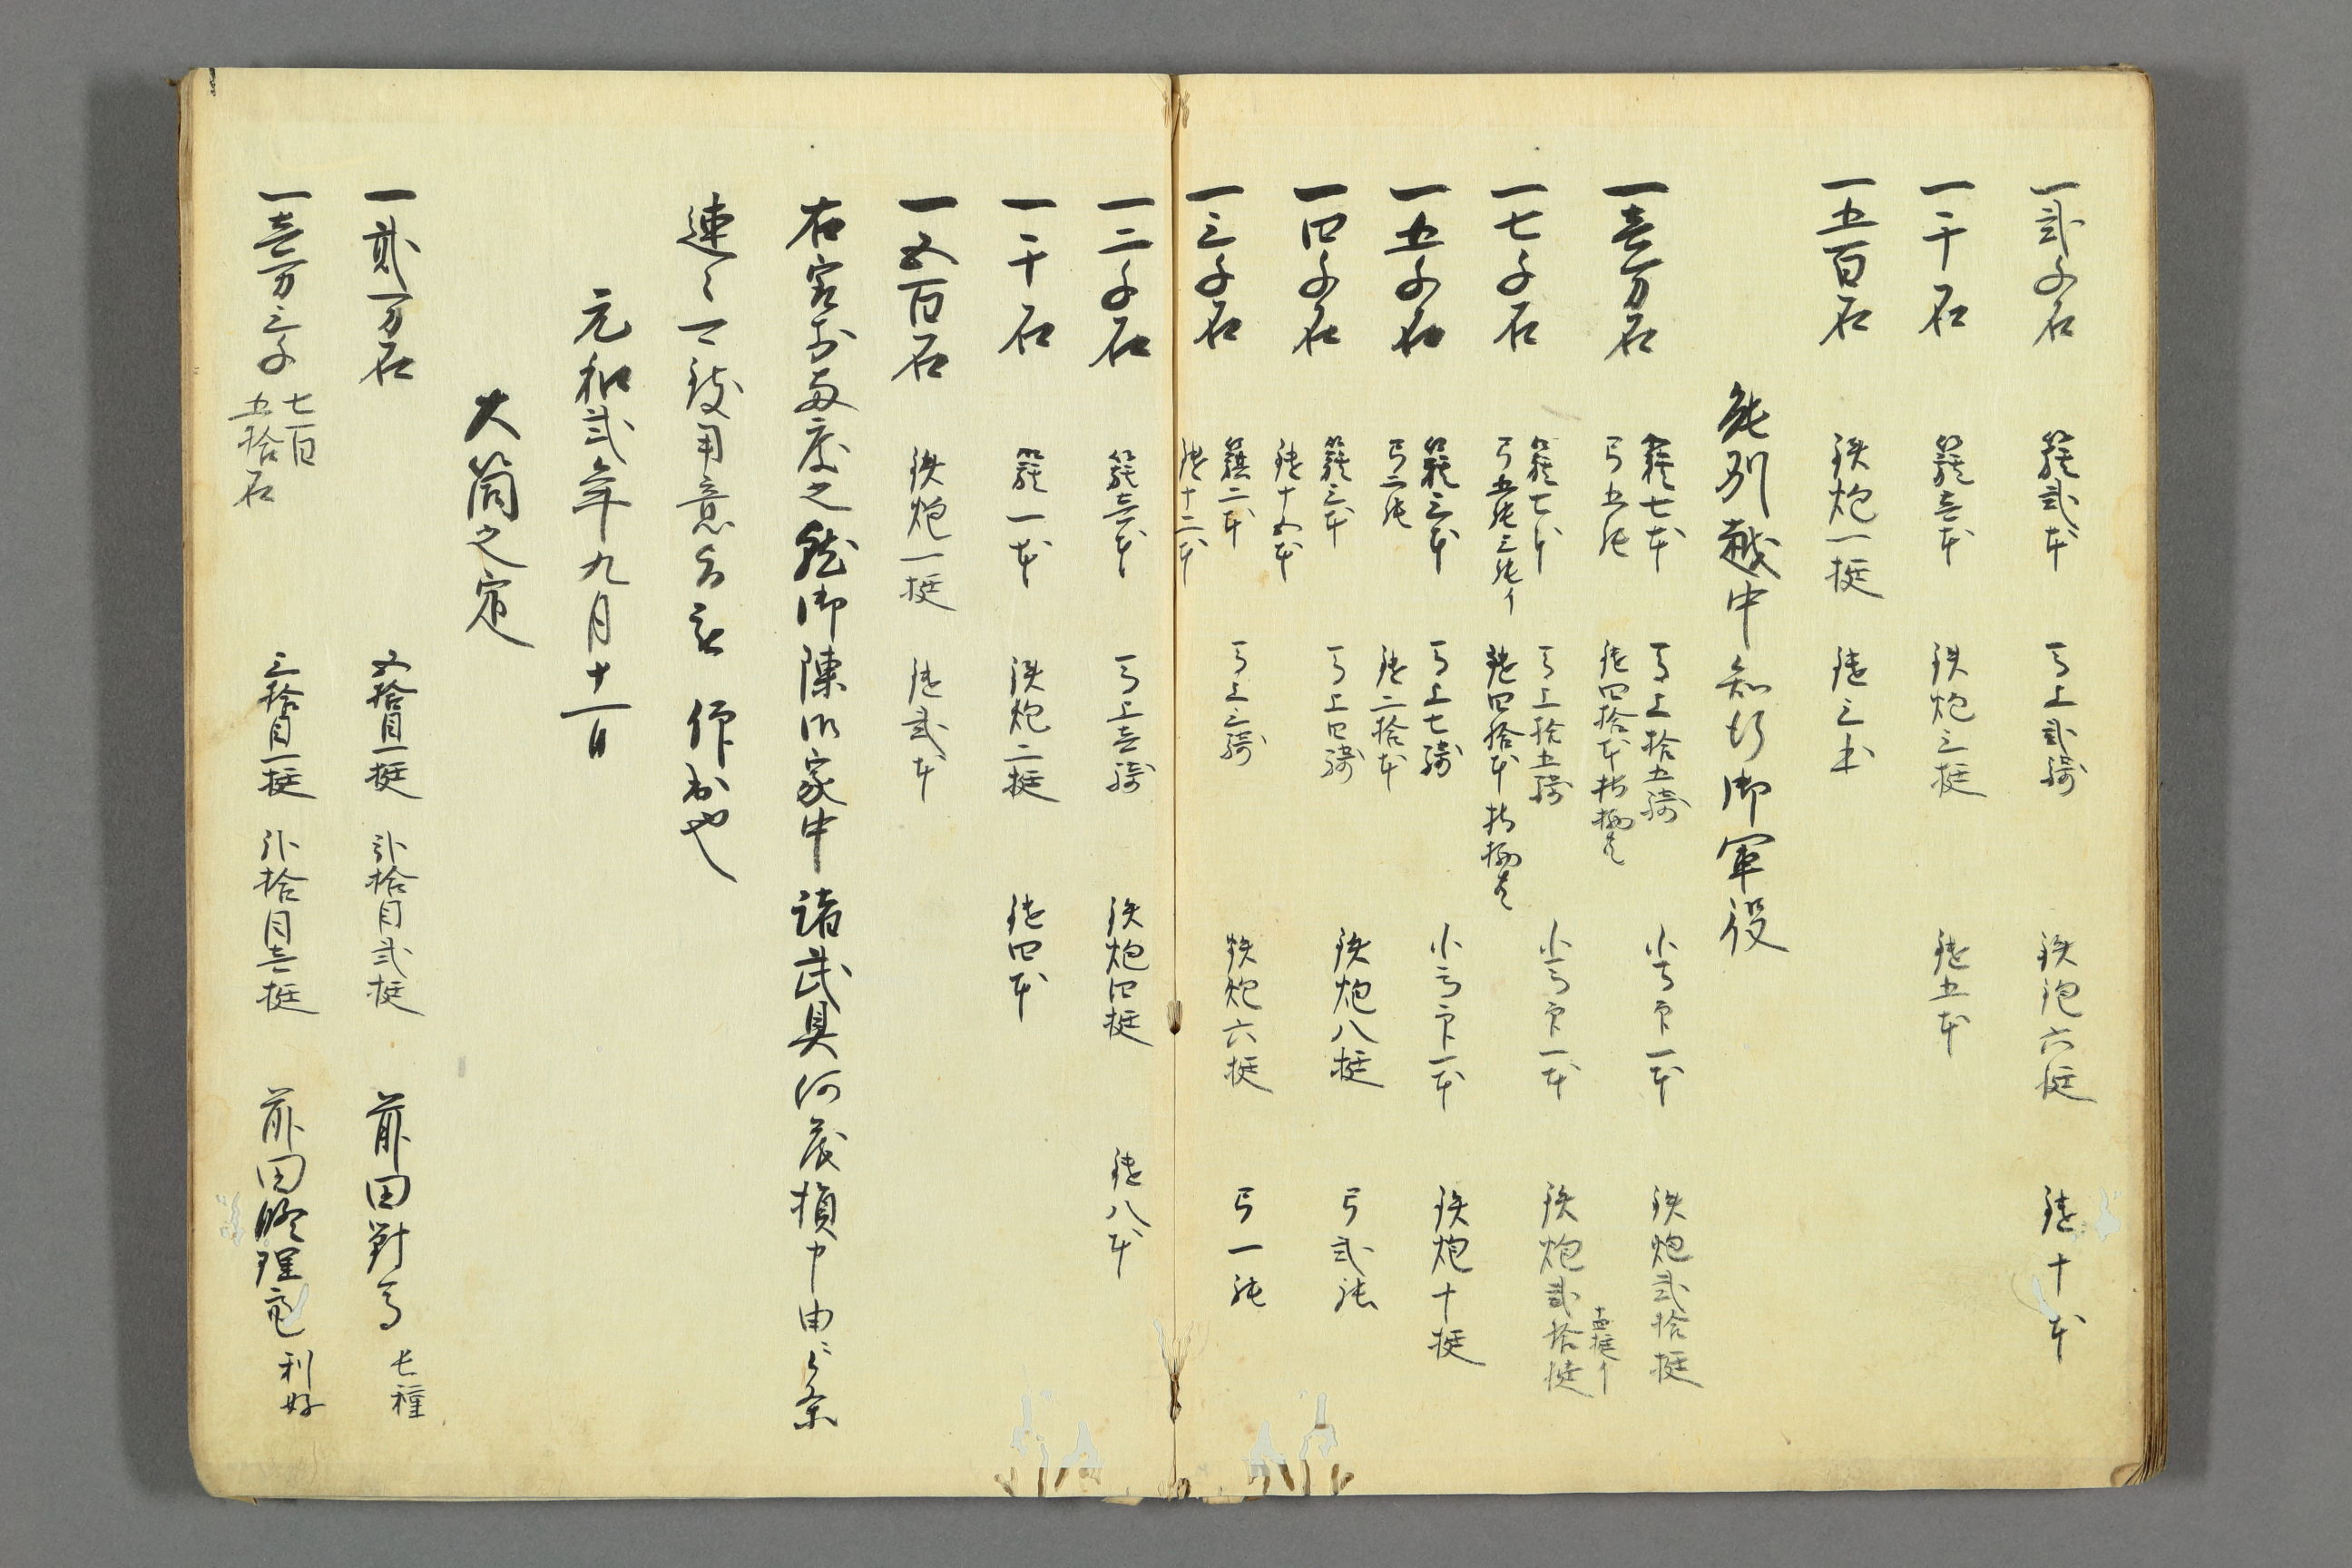 一弐千石 籏弐本 馬上弐騎 鉄炮六挺 鑓十本
一千石 籏壱本 鉄炮三挺 鑓五本
一五百石 鉄炮一挺 鑓三本
能州越中知行御軍役
一壱万石 籏七本 弓五張 馬上拾五騎 鑓四拾本 小馬印一本 鉄炮弐拾挺
一七千石 籏七本 弓五張三張イ 馬上拾五騎 鑓四拾本 小馬印一本 鉄炮弐拾挺
一五千石 籏三本 弓二張 馬上七騎 鑓二拾本 小馬印一本 鉄炮十挺
一四千石 籏三本 鑓十五本 馬上四騎 鉄炮八挺 弓弐張
一三千石 籏二本 鑓十二本 馬上三騎 鉄炮六挺 弓一張
一二千石 籏壱本 馬上壱騎 鉄炮四挺 鑓八本
一千石 籏一本 鉄炮二挺 鑓四本
一五百石 鉄炮一挺 鑓弐本
右 之 御陳 御家中諸武具何茂損申由ニ候条
連々可致用意 仰出也
元和弐年九月十一日
大筒之定
一貮万石 五拾目一挺 弐拾目弐挺 前田対馬 長種
一壱万三千七百五拾石 三拾目一挺 弐拾目壱挺 前田修理亮 利好